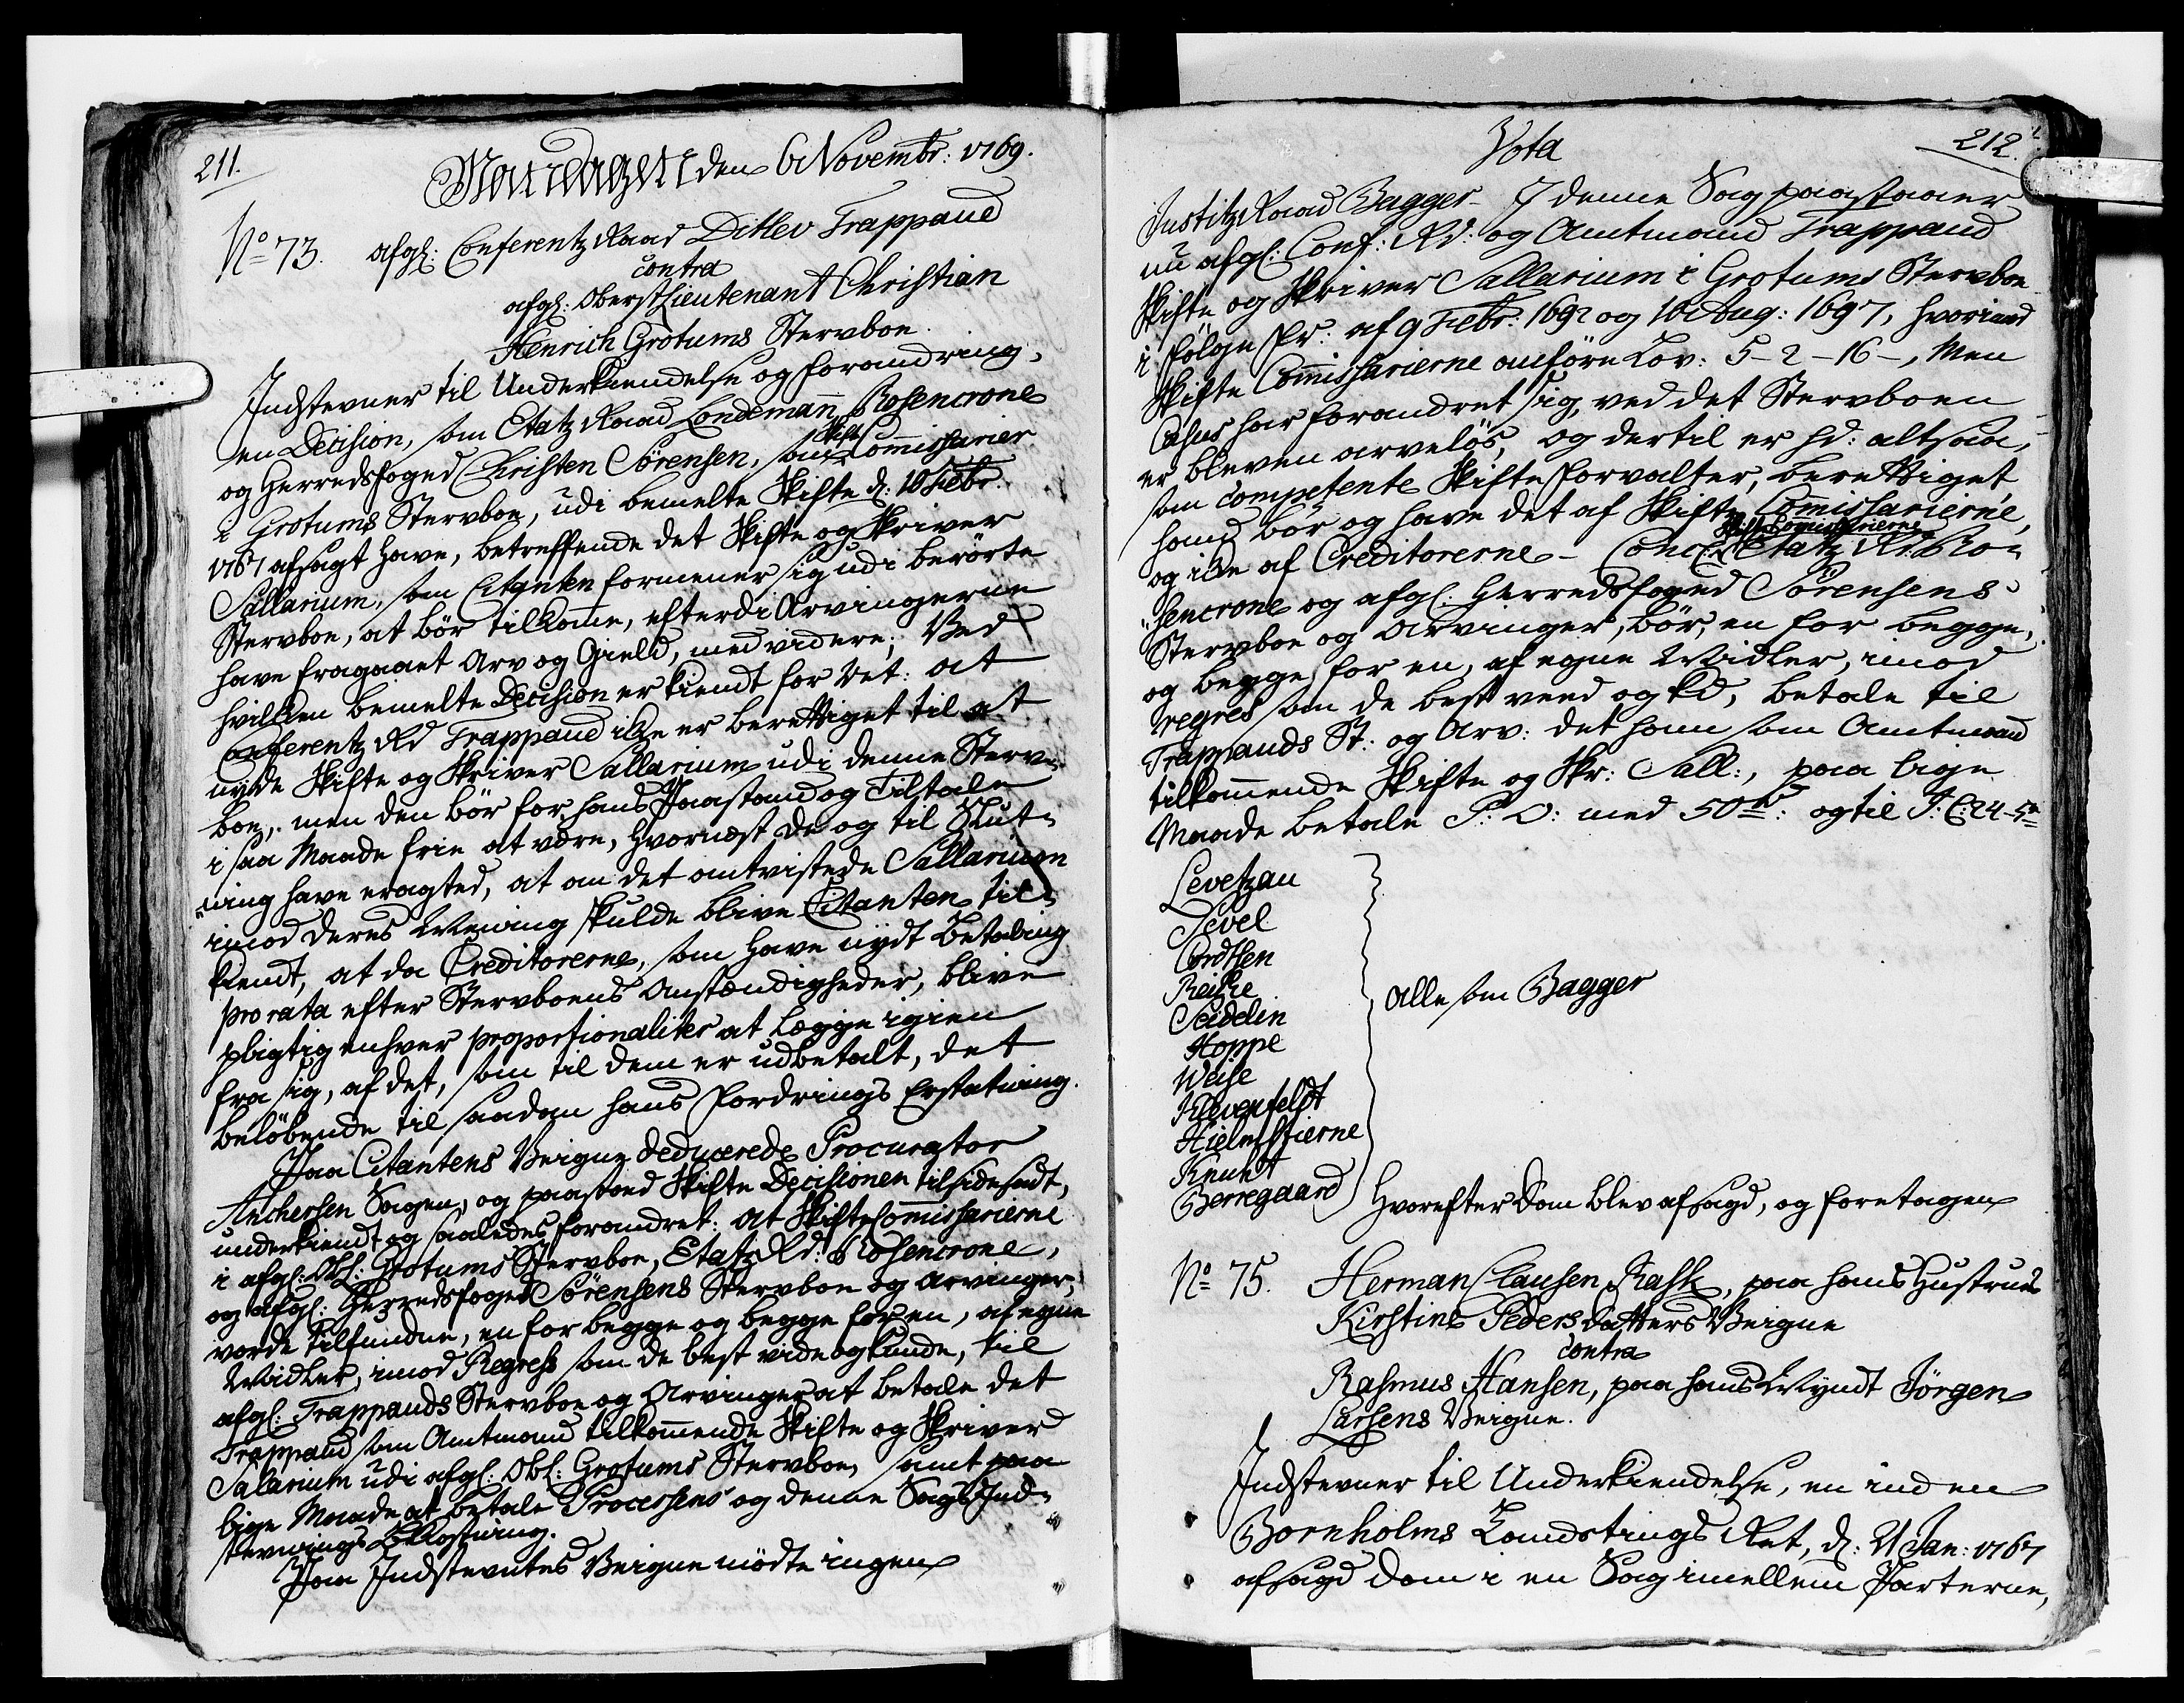 211.
Mandagen den 6 Novembr: 1769.
No 73. afgl: Conferentz Raad Ditlev Trappaud
contra
afgl: OberstLieutenant Christian
Henrich Grotums Stervboe.
Indstevner til Underkiendelse og forandring,
en Decision, som Etatz Raad Londemann Rosencrone
og Herredsfoged Christen Sörensen, som Skifte Commissarier
i Grotums Stervboe, udi bemelte Skifte d: 10 Febr.
1767 afsagt have, betreffende det Skifte og Skriver
Sallarium, som Citanten formener sig udi berörte
Stervboe, at bör tilkomme, efterdi Arvingerne
have fragaaet Arv og Gield, med videre; Ved
hvilken bemelte Decision er kiendt for Ret: at
Conferentz Rd Trappaud ikke er berettiget til at
nyde Skifte og Skriver Sallarium udi denne Sterv-
boe, men den bör for hans Paastand og Tiltale
i saa Maade frie at være, hvornæst de og til Slut-
ning have eragted, at om det omtvistede Sallarium
imod deres Mening skulde blive Citanten til-
kiendt, at da Creditorerne, som have nydt Betaling
pro rata efter Stervboens Omstændigheder, blive
pligtig enhver proportionaliter at lægge igien
fra sig, af det, som til dem er udbetalt, det
belöbende til saadan hans Fordrings Erstatning.
Paa Citantens Veigne deducerede Procurator
Anchersen Sagen, og paastod Skifte Decisionen tilsidesadt,
underkiendt og saaledes forandret: at Skifte Commissarierne
i afgl: Obl: Grotums Stervboe, Etatz Rd: Rosencrone,
og afgl: Herredsfoged Sörensens Stervboe og Arvinger,
vorde tilfundne, en for begge og begge for en, af egne
Midler, imod Regress som de best vide og kunde, til
afgl: Trappauds Stervboe og Arvinger at betale det
Trappaud som Amtmand tilkommende Skifte og Skriver
Salarium udi afgl: Obl: Grotums Stervboe, samt paa
lige Maade at betale Processens og denne Sags Ind-
stevnings Bekostning.
Paa Indstevntes Veigne mödte ingen
212.
Vota
Justitz Raad Bagger - I denne Sag paastaaer
nu afgl: Conf: Rd: og Amtmand Trappaud
Skifte og Skriver Sallarium i Grotums Stervboe
i fölge Fr: af 9 Febr: 1692 og 10 Aug: 1697, hvorimod
Skifte Commissarierne anföre Lov: 5-2-16-, Men
Casus har forandret sig, ved det Stervboen
er bleven arvelös, og dertil er hd: altsaa,
som competente Skifteforvalter, berettiget
hand bör og have det af Skifte Commissarierne,
og ikke af Creditorerne - Concl: Skifte Commissarierne Etatz Rd. Ro-
sencrone og afgl: Herredsfoged Sörensens
Stervboe og Arvinger, bör, en for begge,
og begge for en, af egne Midler, imod
regres som de best veed og kd, betale til
Trappauds St: og Arv: det ham som Amtmand
tilkommende Skifte og Skr: Sall:, paa lige
Maade betale P: O: med 50 rd: og til J: C: 24-
Levetzau
Sevel
Cordtsen
Reiche
Seidelin
Hoppe
Weise
Klevenfeldt
Hielmstierne
Knuht
Berregaard
alle som Bagger
Hvorefter Dom blev afsagd, og foretagen
No 75. Herman Clausen Rask, paa hans Hustrue
Kirstine Peders datters Veigne
contra
Rasmus Hansen, paa hans Myndt Jörgen
Larsens Veigne.
Indstevner til Underkiendelse, en inden
Bornholms Landstings Ret, d: 21 Jan: 1767
afsagd Dom i en Sag imellem Parterne,